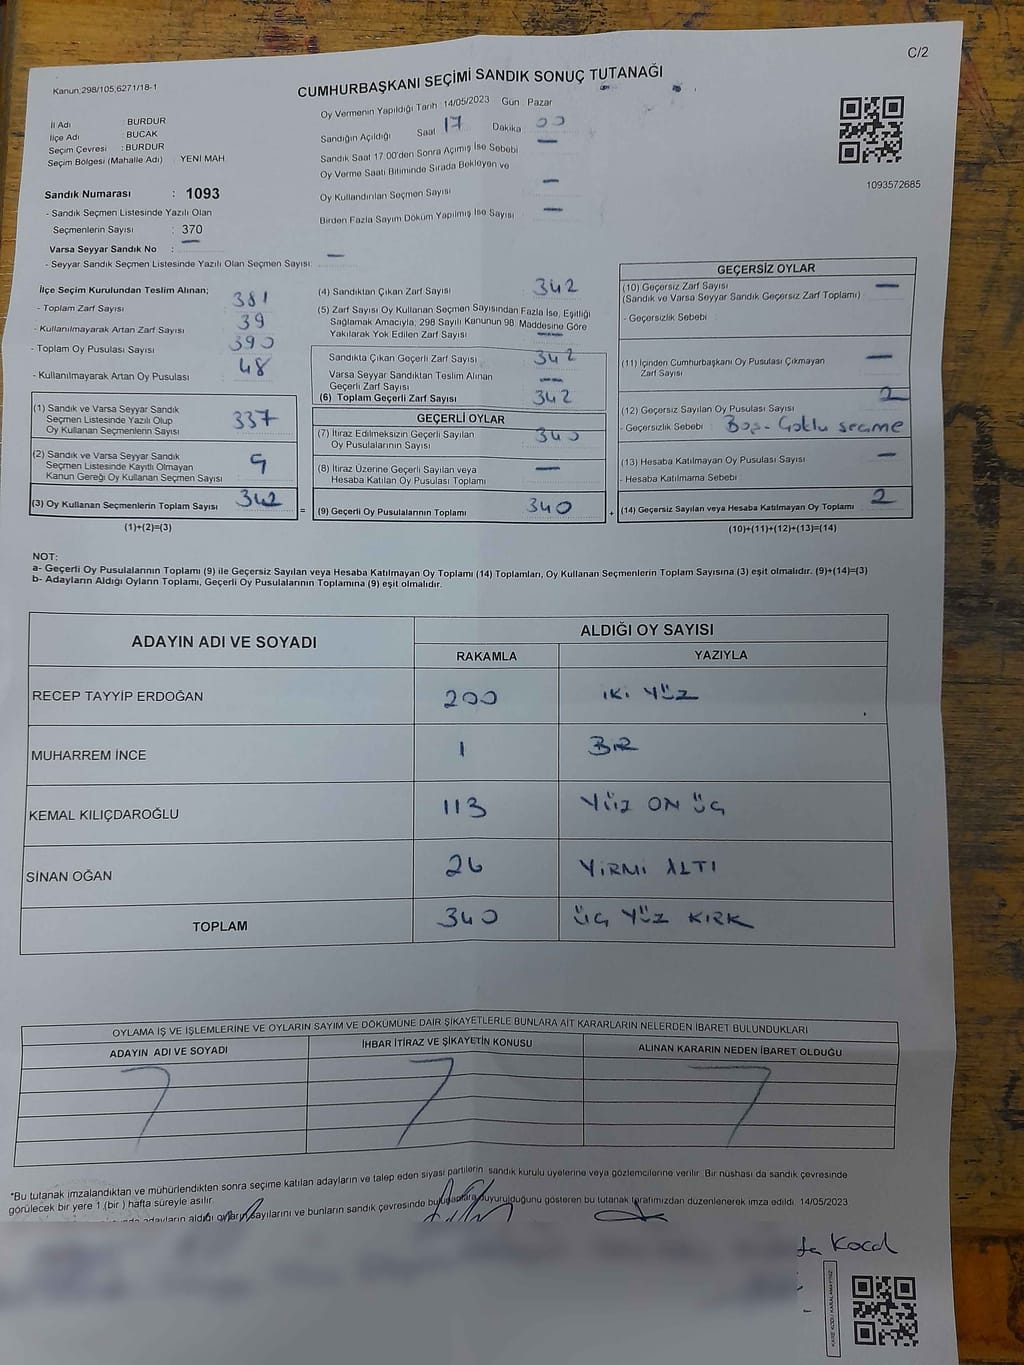 C/2
Kanun 298/105,6271/18-1
CUMHURBAŞKANI SEÇİMİ SANDIK SONUÇ TUTANAĞI
İl Adı : BURDUR
İlçe Adı : BUCAK
Seçim Çevresi : BURDUR
Seçim Bölgesi (Mahalle Adı) : YENİ MAH.
Sandık Numarası : 1093
- Sandık Seçmen Listesinde Yazılı Olan
Seçmenlerin Sayısı : 370
Varsa Seyyar Sandık No : —
- Seyyar Sandık Seçmen Listesinde Yazılı Olan Seçmen Sayısı: —
Oy Vermenin Yapıldığı Tarih 14/05/2023 Gün Pazar
Sandığın Açıldığı Saat 17 Dakika 00
Sandık Saat 17.00'den Sonra Açılmış İse Sebebi —
Oy Verme Saati Bitiminde Sırada Bekleyen ve
Oy Kullandırılan Seçmen Sayısı —
Birden Fazla Sayım Döküm Yapılmış İse Sayısı —
1093572685
İlçe Seçim Kurulundan Teslim Alınan;
- Toplam Zarf Sayısı 381
- Kullanılmayarak Artan Zarf Sayısı 39
- Toplam Oy Pusulası Sayısı 390
- Kullanılmayarak Artan Oy Pusulası 48
(1) Sandık ve Varsa Seyyar Sandık
Seçmen Listesinde Yazılı Olup
Oy Kullanan Seçmenlerin Sayısı 337
(2) Sandık ve Varsa Seyyar Sandık
Seçmen Listesinde Kayıtlı Olmayan
Kanun Gereği Oy Kullanan Seçmen Sayısı
(3) Oy Kullanan Seçmenlerin Toplam Sayısı 342
(1)+(2)=(3)
(4) Sandıktan Çıkan Zarf Sayısı 342
(5) Zarf Sayısı Oy Kullanan Seçmen Sayısından Fazla İse, Eşitliği
Sağlamak Amacıyla; 298 Sayılı Kanunun 98. Maddesine Göre
Yakılarak Yok Edilen Zarf Sayısı —
Sandıkta Çıkan Geçerli Zarf Sayısı 342
Varsa Seyyar Sandıktan Teslim Alınan
Geçerli Zarf Sayısı —
(6) Toplam Geçerli Zarf Sayısı 342
GEÇERLİ OYLAR
(7) İtiraz Edilmeksizin Geçerli Sayılan
Oy Pusulalarının Sayısı 340
(8) İtiraz Üzerine Geçerli Sayılan veya
Hesaba Katılan Oy Pusulası Toplamı —
= (9) Geçerli Oy Pusulalarının Toplamı 340
GEÇERSİZ OYLAR
(10) Geçersiz Zarf Sayısı —
(Sandık ve Varsa Seyyar Sandık Geçersiz Zarf Toplamı)
- Geçersizlik Sebebi :
(11) İçinden Cumhurbaşkanı Oy Pusulası Çıkmayan
Zarf Sayısı —
(12) Geçersiz Sayılan Oy Pusulası Sayısı 2
- Geçersizlik Sebebi : Boş - Çoklu seçme
(13) Hesaba Katılmayan Oy Pusulası Sayısı —
- Hesaba Katılmama Sebebi
+ (14) Geçersiz Sayılan veya Hesaba Katılmayan Oy Toplamı 2
(10)+(11)+(12)+(13)=(14)
NOT:
a- Geçerli Oy Pusulalarının Toplamı (9) ile Geçersiz Sayılan veya Hesaba Katılmayan Oy Toplamı (14) Toplamları, Oy Kullanan Seçmenlerin Toplam Sayısına (3) eşit olmalıdır. (9)+(14)=(3)
b- Adayların Aldığı Oyların Toplamı, Geçerli Oy Pusulalarının Toplamına (9) eşit olmalıdır.
ADAYIN ADI VE SOYADI ALDIĞI OY SAYISI
RAKAMLA YAZIYLA
RECEP TAYYİP ERDOĞAN 200 İKİ YÜZ
MUHARREM İNCE 1 BİR
KEMAL KILIÇDAROĞLU 113 YÜZ ON ÜÇ
SİNAN OĞAN 26 YİRMİ ALTI
TOPLAM 340 ÜÇ YÜZ KIRK
OYLAMA İŞ VE İŞLEMLERİNE VE OYLARIN SAYIM VE DÖKÜMÜNE DAİR ŞİKAYETLERLE BUNLARA AİT KARARLARIN NELERDEN İBARET BULUNDUKLARI
ADAYIN ADI VE SOYADI İHBAR İTİRAZ VE ŞİKAYETİN KONUSU ALINAN KARARIN NEDEN İBARET OLDUĞU
*Bu tutanak imzalandıktan ve mühürlendikten sonra seçime katılan adayların ve talep eden siyasi partilerin sandık kurulu üyelerine veya gözlemcilerine verilir. Bir nüshası da sandık çevresinde
görülecek bir yere 1 (bir) hafta süreyle asılır.
adayların aldığı oyların sayılarını ve bunların sandık çevresinde duyurulduğunu gösteren bu tutanak tarafımızdan düzenlenerek imza edildi. 14/05/2023
KARE KODU KARALAMAYINIZ